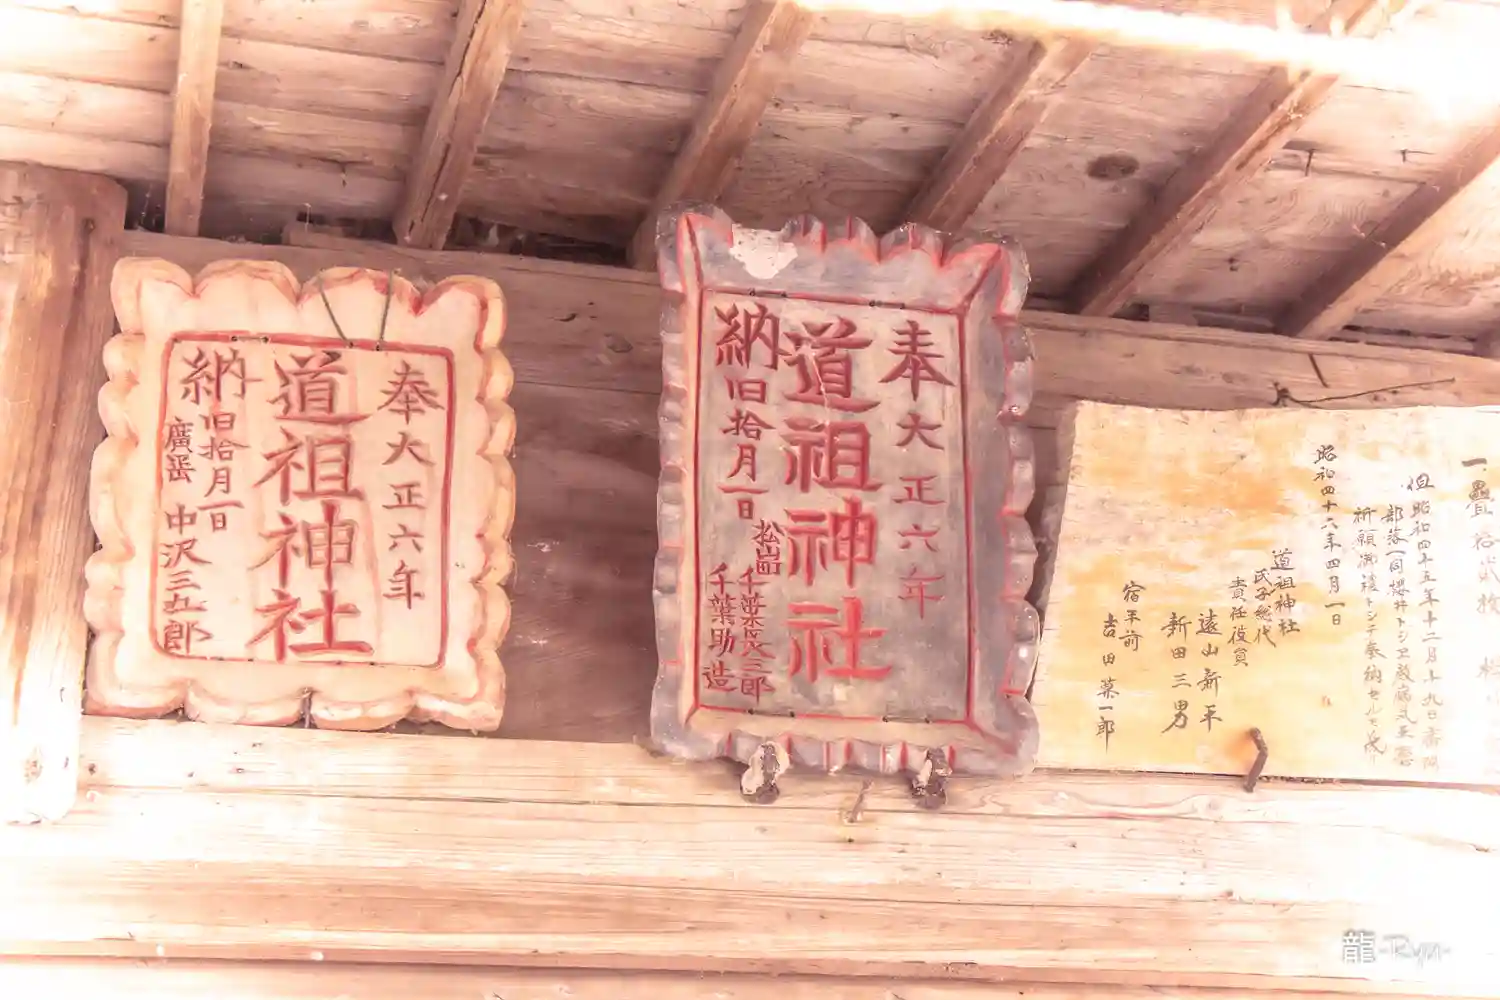 奉大正六年
道祖神社
納旧拾月一日
廣岳 中沢三五郎
奉大正六年
道祖神社
納旧拾月一日
松山
千葉長三郎
千葉助造
一、疊拾弐枚
但昭和四十五年十二月十九日
部落一同櫻井トシ
祈願御禮トシテ奉納セル
昭和四十六年四月一日
道祖神社
氏子総代
責任役員
遠山新平
新田三男
宿平前
吉田菜一郎
龍-Ryu-